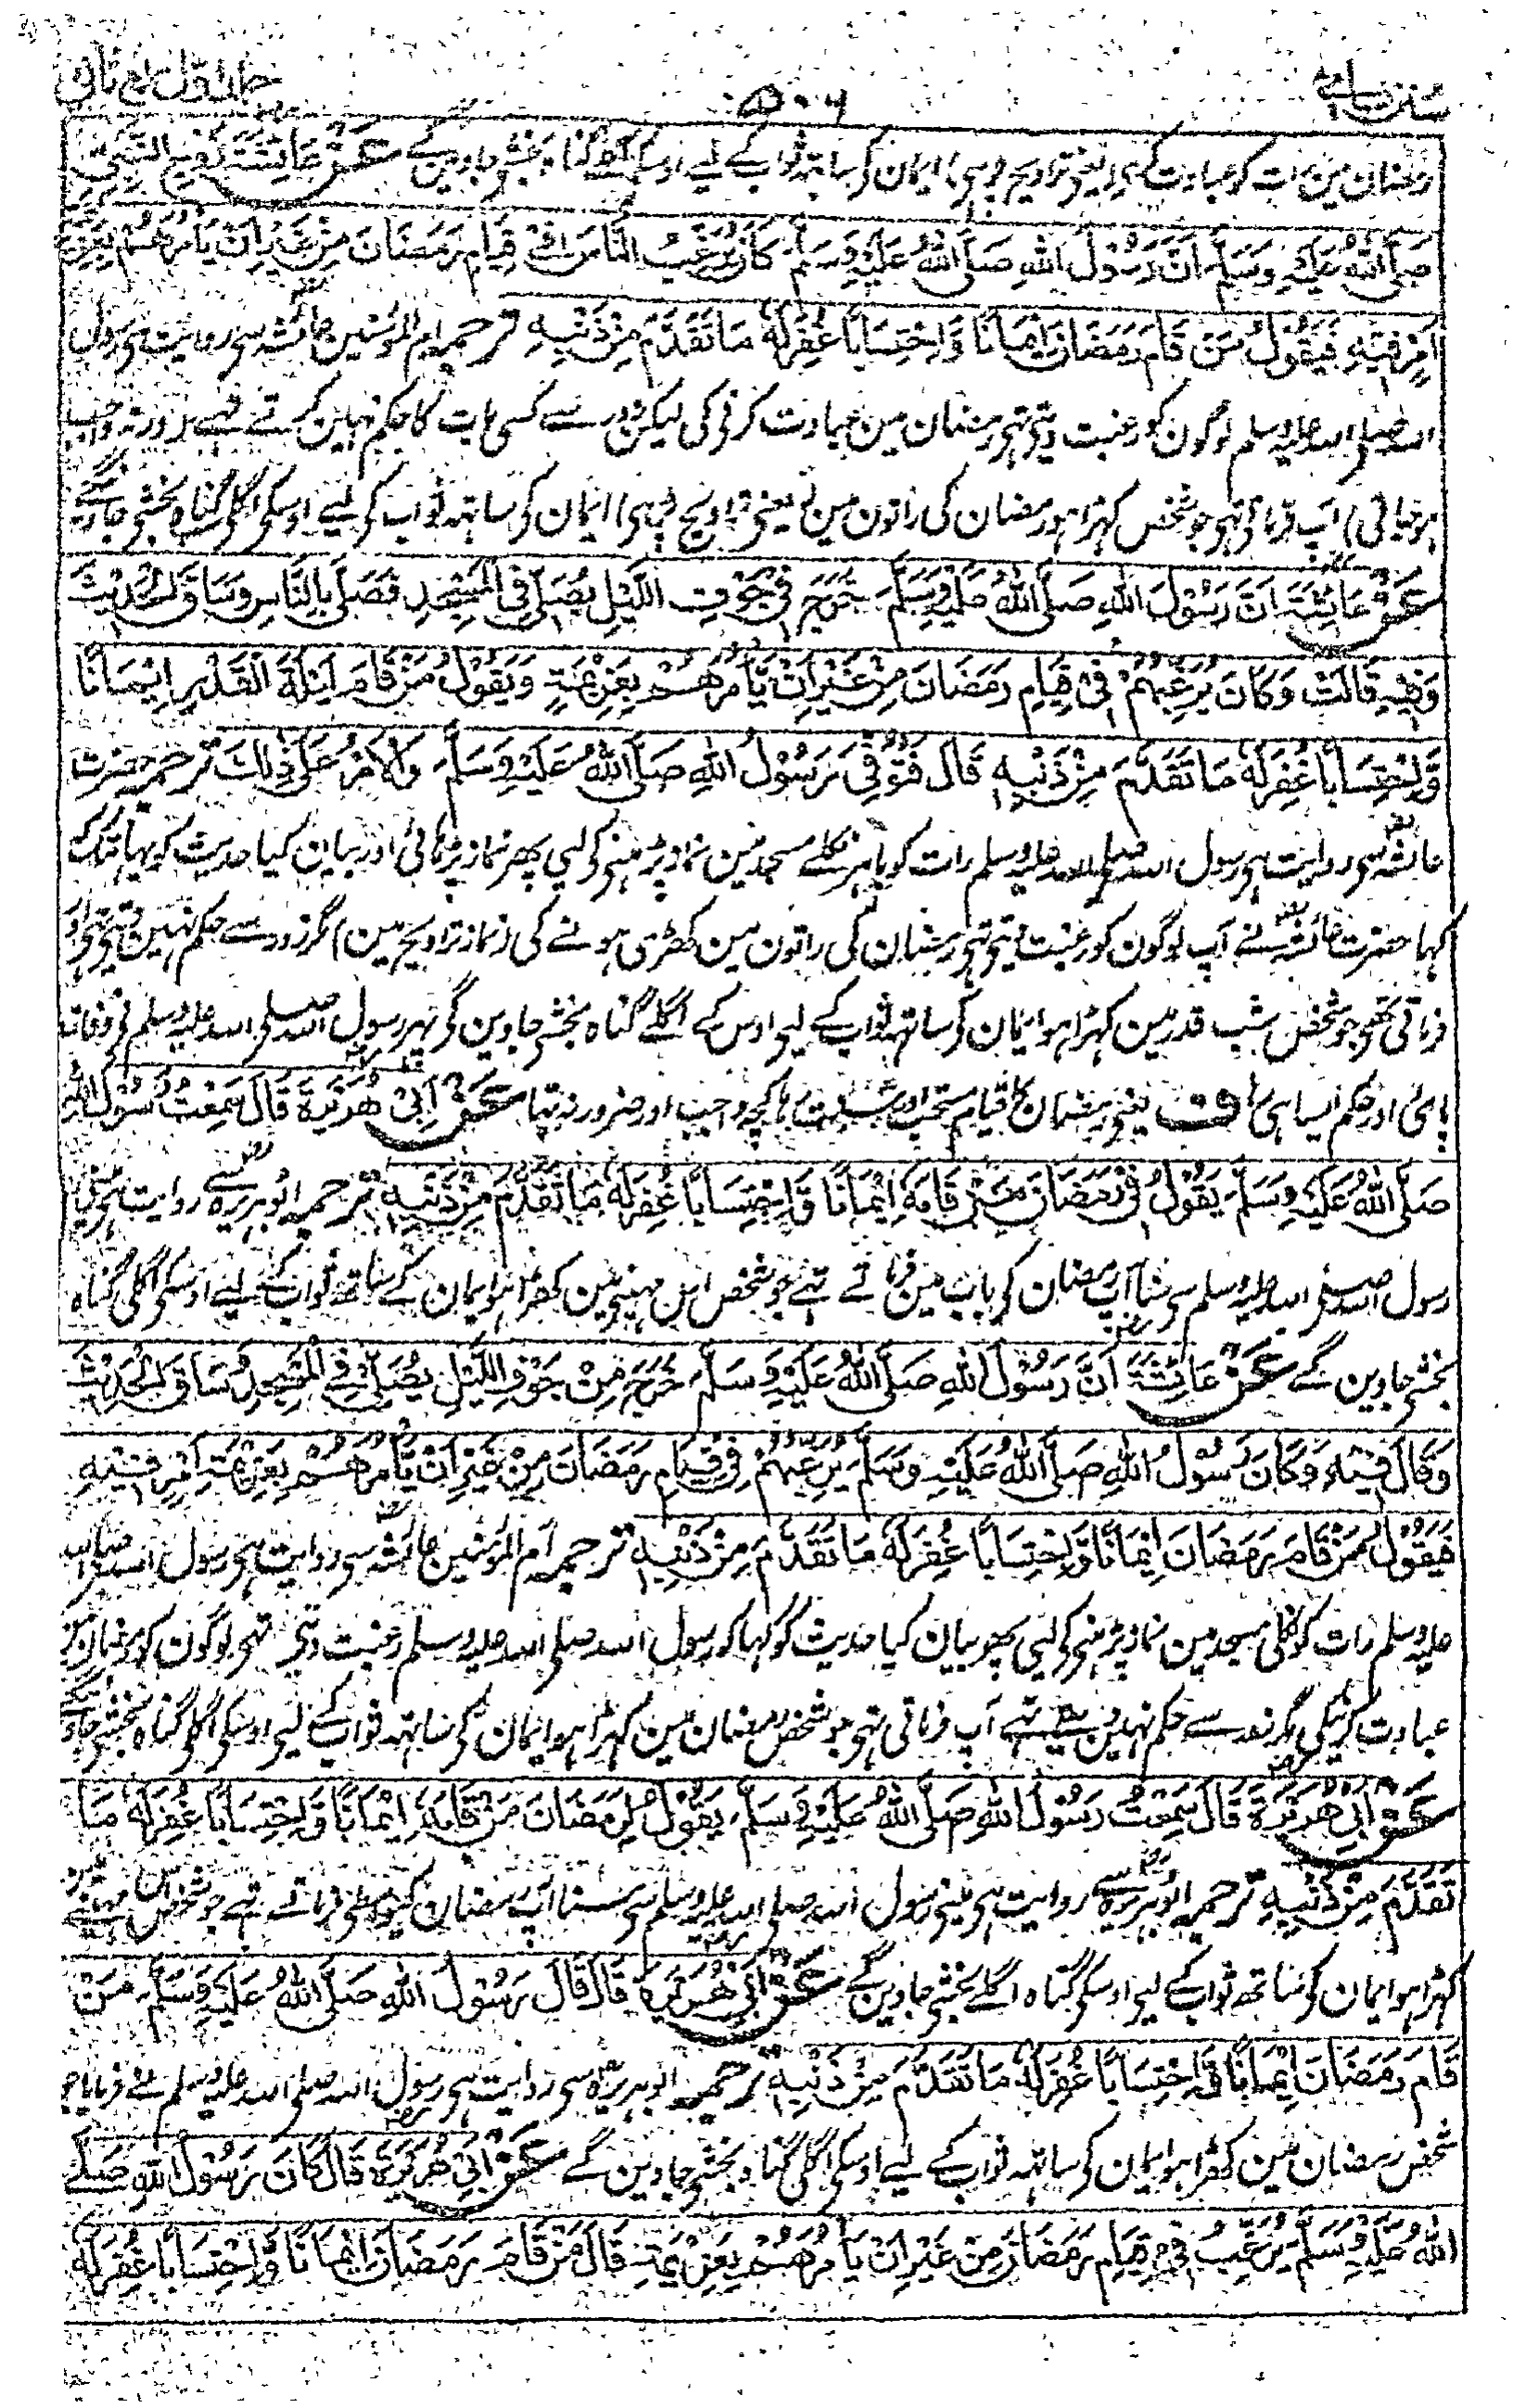 سنن نسائی ۵۰۶ جلد اول ربع ثانی
رمضان مین رات کو عبادت کری (یعنی تراویح پڑہی) ایمان کی ساتہہ ثواب کے لیے اوسکے اگلے گناہ بخشی جاوین گے عَنْ عَائِشَةَ زَوْجِ النَّبِيِّ
صَلَّى اللهُ عَلَيْهِ وَسَلَّمَ اَنَّ رَسُوْلَ اللهِ صَلَّى اللهُ عَلَيْهِ وَسَلَّمَ كَانَ يُرَغِّبُ النَّاسَ فِيْ قِيَامِ رَمَضَانَ مِنْ غَيْرِ اَنْ يَاْمُرَهُمْ بِعَزِيْمَةِ
اَمْرٍ فِيْهِ فَيَقُوْلُ مَنْ قَامَ رَمَضَانَ اِيْمَانًا وَّاحْتِسَابًا غُفِرَ لَهٗ مَا تَقَدَّمَ مِنْ ذَنْبِهٖ ترجمہ ام المومنین عائشہ سی روایت ہی رسول
اللہ صلی اللہ علیہ وسلم لوگون کو رغبت دیتی تہی رمضان مین عبادت کرنی کی لیکن زور سے کسی بات کا حکم نہین کرتے تہے ورنہ واجب
ہوجاتی) آپ فرماتی تہی جو شخص کہڑا ہو رمضان کی راتون مین (یعنی تراویح پڑہی) ایمان کی ساتہہ ثواب کی لیے اوسکی اگلی گناہ بخشی جاوینگے
عَنْ عَائِشَةَ اَنَّ رَسُوْلَ اللهِ صَلَّى اللهُ عَلَيْهِ وَسَلَّمَ خَرَجَ فِيْ جَوْفِ اللَّيْلِ يُصَلِّيْ فِي الْمَسْجِدِ فَصَلّٰى بِالنَّاسِ وَسَاقَ الْحَدِيْثَ
وَفِيْهِ قَالَتْ وَكَانَ يُرَغِّبُهُمْ فِيْ قِيَامِ رَمَضَانَ مِنْ غَيْرِ اَنْ يَّاْمُرَهُمْ بِعَزِيْمَةٍ وَيَقُوْلُ مَنْ قَامَ لَيْلَةَ الْقَدْرِ اِيْمَانًا
وَّاحْتِسَابًا غُفِرَ لَهٗ مَا تَقَدَّمَ مِنْ ذَنْبِهٖ قَالَ فَتُوُفِّيَ رَسُوْلُ اللهِ صَلَّى اللهُ عَلَيْهِ وَسَلَّمَ وَالْاَمْرُ عَلٰى ذٰلِكَ ترجمہ حضرت
عائشہ سی روایت ہی رسول اللہ صلی اللہ علیہ وسلم رات کو باہر نکلے مسجد مین نماز پڑہنی کی لیی پھر نماز پڑہائی اور بیان کیا حدیث کو یہانتک
کہا حضرت عائشہ نے آپ لوگون کو رغبت دیتی تہی رمضان کی راتون مین کھڑی ہونے کی (نماز تراویح مین) مگر زور سے حکم نہین دیتی تہی اور
فرماتی تھی جو شخص شب قدر مین کہڑا ہو ایمان کی ساتہہ ثواب کے لیی اوس کے اگلے گناہ بخشی جاوین گی پہر رسول اللہ صلی اللہ علیہ وسلم نی وفات
پائی اور حکم ایسا ہی رہا ف یعنی رمضان کا قیام مستحب اور سنت رہا کچہ واجب اور ضرور نہ تہا عَنْ اَبِيْ هُرَيْرَةَ قَالَ سَمِعْتُ رَسُوْلَ اللهِ
صَلَّى اللهُ عَلَيْهِ وَسَلَّمَ يَقُوْلُ فِيْ رَمَضَانَ مَنْ قَامَهٗ اِيْمَانًا وَّاحْتِسَابًا غُفِرَ لَهٗ مَا تَقَدَّمَ مِنْ ذَنْبِهٖ ترجمہ ابوہریرہ سے روایت ہی مین نی
رسول اللہ صلی اللہ علیہ وسلم سی سنا آپ رمضان کی باب مین فرماتے تہے جو شخص اس مہینی مین کھڑا ہو ایمان کے ساتھ ثواب کے لیے اوسکی اگلی گناہ
بخشی جاوین گے عَنْ عَائِشَةَ اَنَّ رَسُوْلَ اللهِ صَلَّى اللهُ عَلَيْهِ وَسَلَّمَ خَرَجَ مِنْ جَوْفِ اللَّيْلِ يُصَلِّيْ فِي الْمَسْجِدِ وَسَاقَ الْحَدِيْثَ
وَقَالَ فِيْهِ وَكَانَ رَسُوْلُ اللهِ صَلَّى اللهُ عَلَيْهِ وَسَلَّمَ يُرَغِّبُهُمْ فِيْ قِيَامِ رَمَضَانَ مِنْ غَيْرِ اَنْ يَّاْمُرَهُمْ بِعَزِيْمَةِ اَمْرٍ فِيْهِ
فَيَقُوْلُ مَنْ قَامَ رَمَضَانَ اِيْمَانًا وَّاحْتِسَابًا غُفِرَ لَهٗ مَا تَقَدَّمَ مِنْ ذَنْبِهٖ ترجمہ ام المومنین عائشہ سی روایت ہی رسول اللہ صلی اللہ
علیہ وسلم رات کو نکلی مسجد مین نماز پڑہنی کی لیی پھر بیان کیا حدیث کو کہا کہ رسول اللہ صلی اللہ علیہ وسلم رغبت دیتی تہی لوگون کو رمضان مین
عبادت کرنیکی مگر زور سے حکم نہین دیتے تہے آپ فرماتی تہی جو شخص رمضان مین کہڑا ہو ایمان کی ساتہہ ثواب کے لیی اوسکی اگلی گناہ بخشی جاوینگے
عَنْ اَبِيْ هُرَيْرَةَ قَالَ سَمِعْتُ رَسُوْلَ اللهِ صَلَّى اللهُ عَلَيْهِ وَسَلَّمَ يَقُوْلُ لِرَمَضَانَ مَنْ قَامَهٗ اِيْمَانًا وَّاحْتِسَابًا غُفِرَ لَهٗ مَا
تَقَدَّمَ مِنْ ذَنْبِهٖ ترجمہ ابوہریرہ سے روایت ہی مینی رسول اللہ صلی اللہ علیہ وسلم سی سنا آپ رمضان کیواسطی فرماتے تہے جو شخص اس مہینے مین
کہڑا ہو ایمان کی ساتھ ثواب کے لیی اوسکی گناہ اگلے بخشی جاوین گے عَنْ اَبِيْ هُرَيْرَةَ قَالَ قَالَ رَسُوْلُ اللهِ صَلَّى اللهُ عَلَيْهِ وَسَلَّمَ مَنْ
قَامَ رَمَضَانَ اِيْمَانًا وَّاحْتِسَابًا غُفِرَ لَهٗ مَا تَقَدَّمَ مِنْ ذَنْبِهٖ ترجمہ ابوہریرہ سی روایت ہی رسول اللہ صلی اللہ علیہ وسلم نے فرمایا جو
شخص رمضان مین کھڑا ہو ایمان کی ساتہہ ثواب کے لیے اوسکی اگلی گناہ بخشی جاوین گے عَنْ اَبِيْ هُرَيْرَةَ قَالَ كَانَ رَسُوْلُ اللهِ صَلَّى
اللهُ عَلَيْهِ وَسَلَّمَ يُرَغِّبُ فِيْ قِيَامِ رَمَضَانَ مِنْ غَيْرِ اَنْ يَاْمُرَهُمْ بِعَزِيْمَةٍ قَالَ مَنْ قَامَ رَمَضَانَ اِيْمَانًا وَّاحْتِسَابًا غُفِرَ لَهٗ